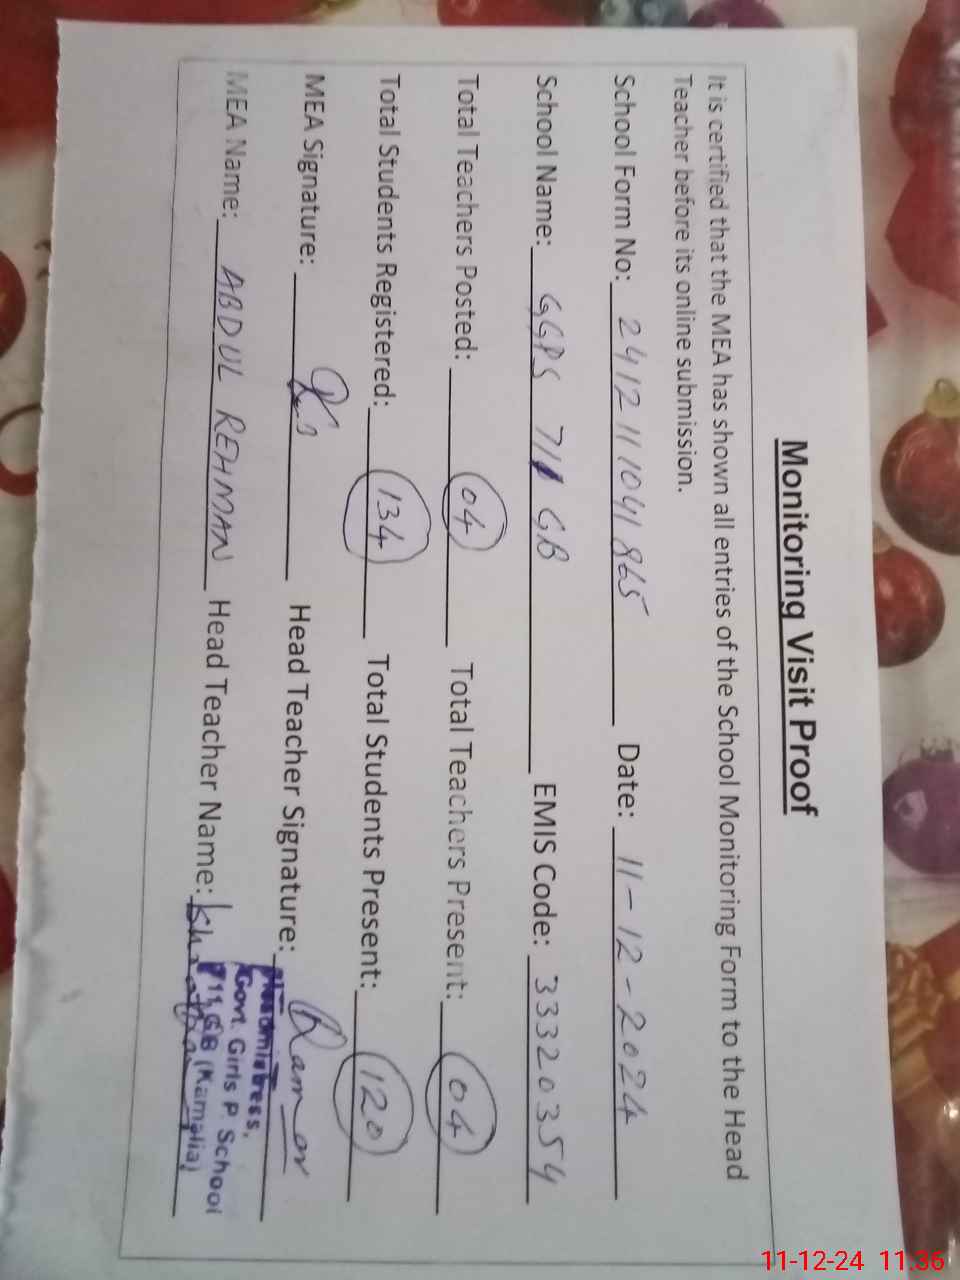 Monitoring Visit Proof
It is certified that the MEA has shown all entries of the School Monitoring Form to the Head
Teacher before its online submission.
School Form No: 241211041865 Date: 11-12-2024
School Name: GGPS 711 GB EMIS Code: 33320354
Total Teachers Posted: 04 Total Teachers Present: 04
Total Students Registered: 134 Total Students Present: 120
MEA Signature: Head Teacher Signature:
MEA Name: ABDUL REHMAN Head Teacher Name:
Headmistress,
Govt. Girls P. School
711, GB (Kamalia)
11-12-24 11:36